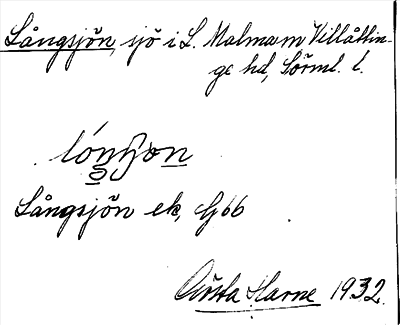 Långsjön, sjö i L. Malma sn Villåttin-
ge hd, Sörml. l.
Långsjön ek, Gj 66
Gösta Harne 1932.